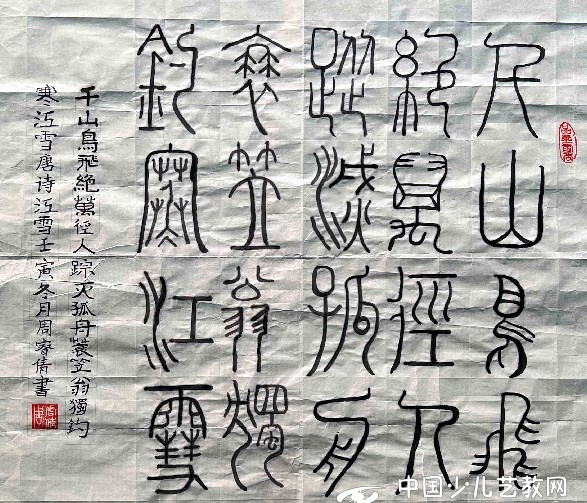 千山鳥飛
絶萬徑人
蹤滅孤舟
蓑笠翁獨
釣寒江雪
千山鳥飛絶萬徑人踪灭孤舟蓑笠翁獨釣
寒江雪唐诗江雪壬寅冬月周睿倩書
中国少儿艺教网